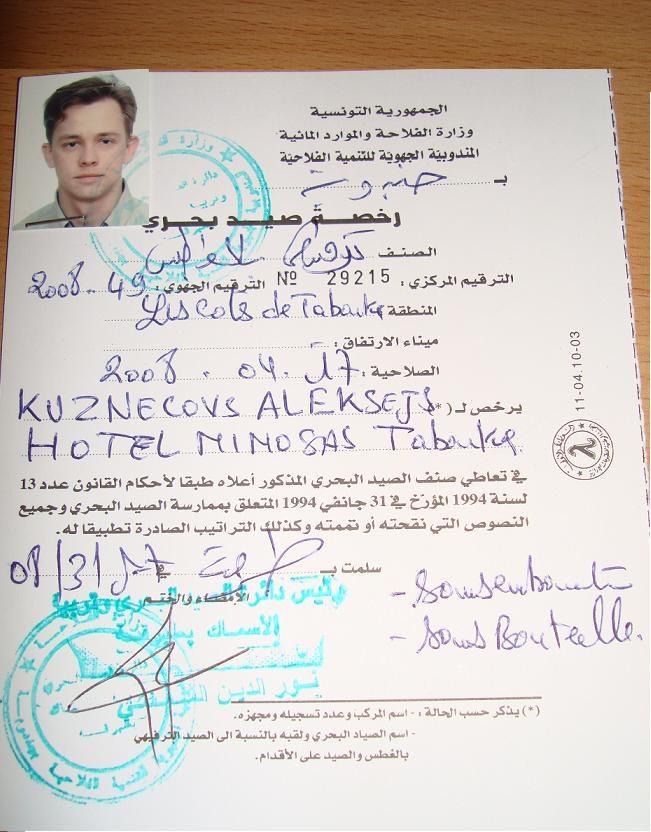 الجمهورية التونسية
وزارة الفلاحة والموارد المائية
المندوبية الجهوية للتنمية الفلاحية
بـ
رخصة صيد بحري
الصنف
الترقيم المركزي : Nº 29215 الترقيم الجهوي : 2008 - 49
المنطقة Les Cots de Tabarka
ميناء الارتفاق :
الصلاحية : 2008 . 04. 17
يرخص لـ (*) KUZNECOVS ALEKSEJS
HOTEL MIMOSAS Tabarka
في تعاطي صنف الصيد البحري المذكور أعلاه طبقا لأحكام القانون عدد 13
لسنة 1994 المؤرخ في 31 جانفي 1994 المتعلق بممارسة الصيد البحري وجميع
النصوص التي نقحته أو تممته وكذلك التراتيب الصادرة تطبيقا له.
سلمت بـ في
الأمضاء والختم
الأسماك
نور الدين
- Sans
- Sans Bouteille.
(*) يذكر حسب الحالة : - اسم المركب وعدد تسجيله ومجهزه.
- اسم الصياد البحري ولقبه بالنسبة الى الصيد الترفيهي
بالغطس والصيد على الأقدام.
11-04.10-03